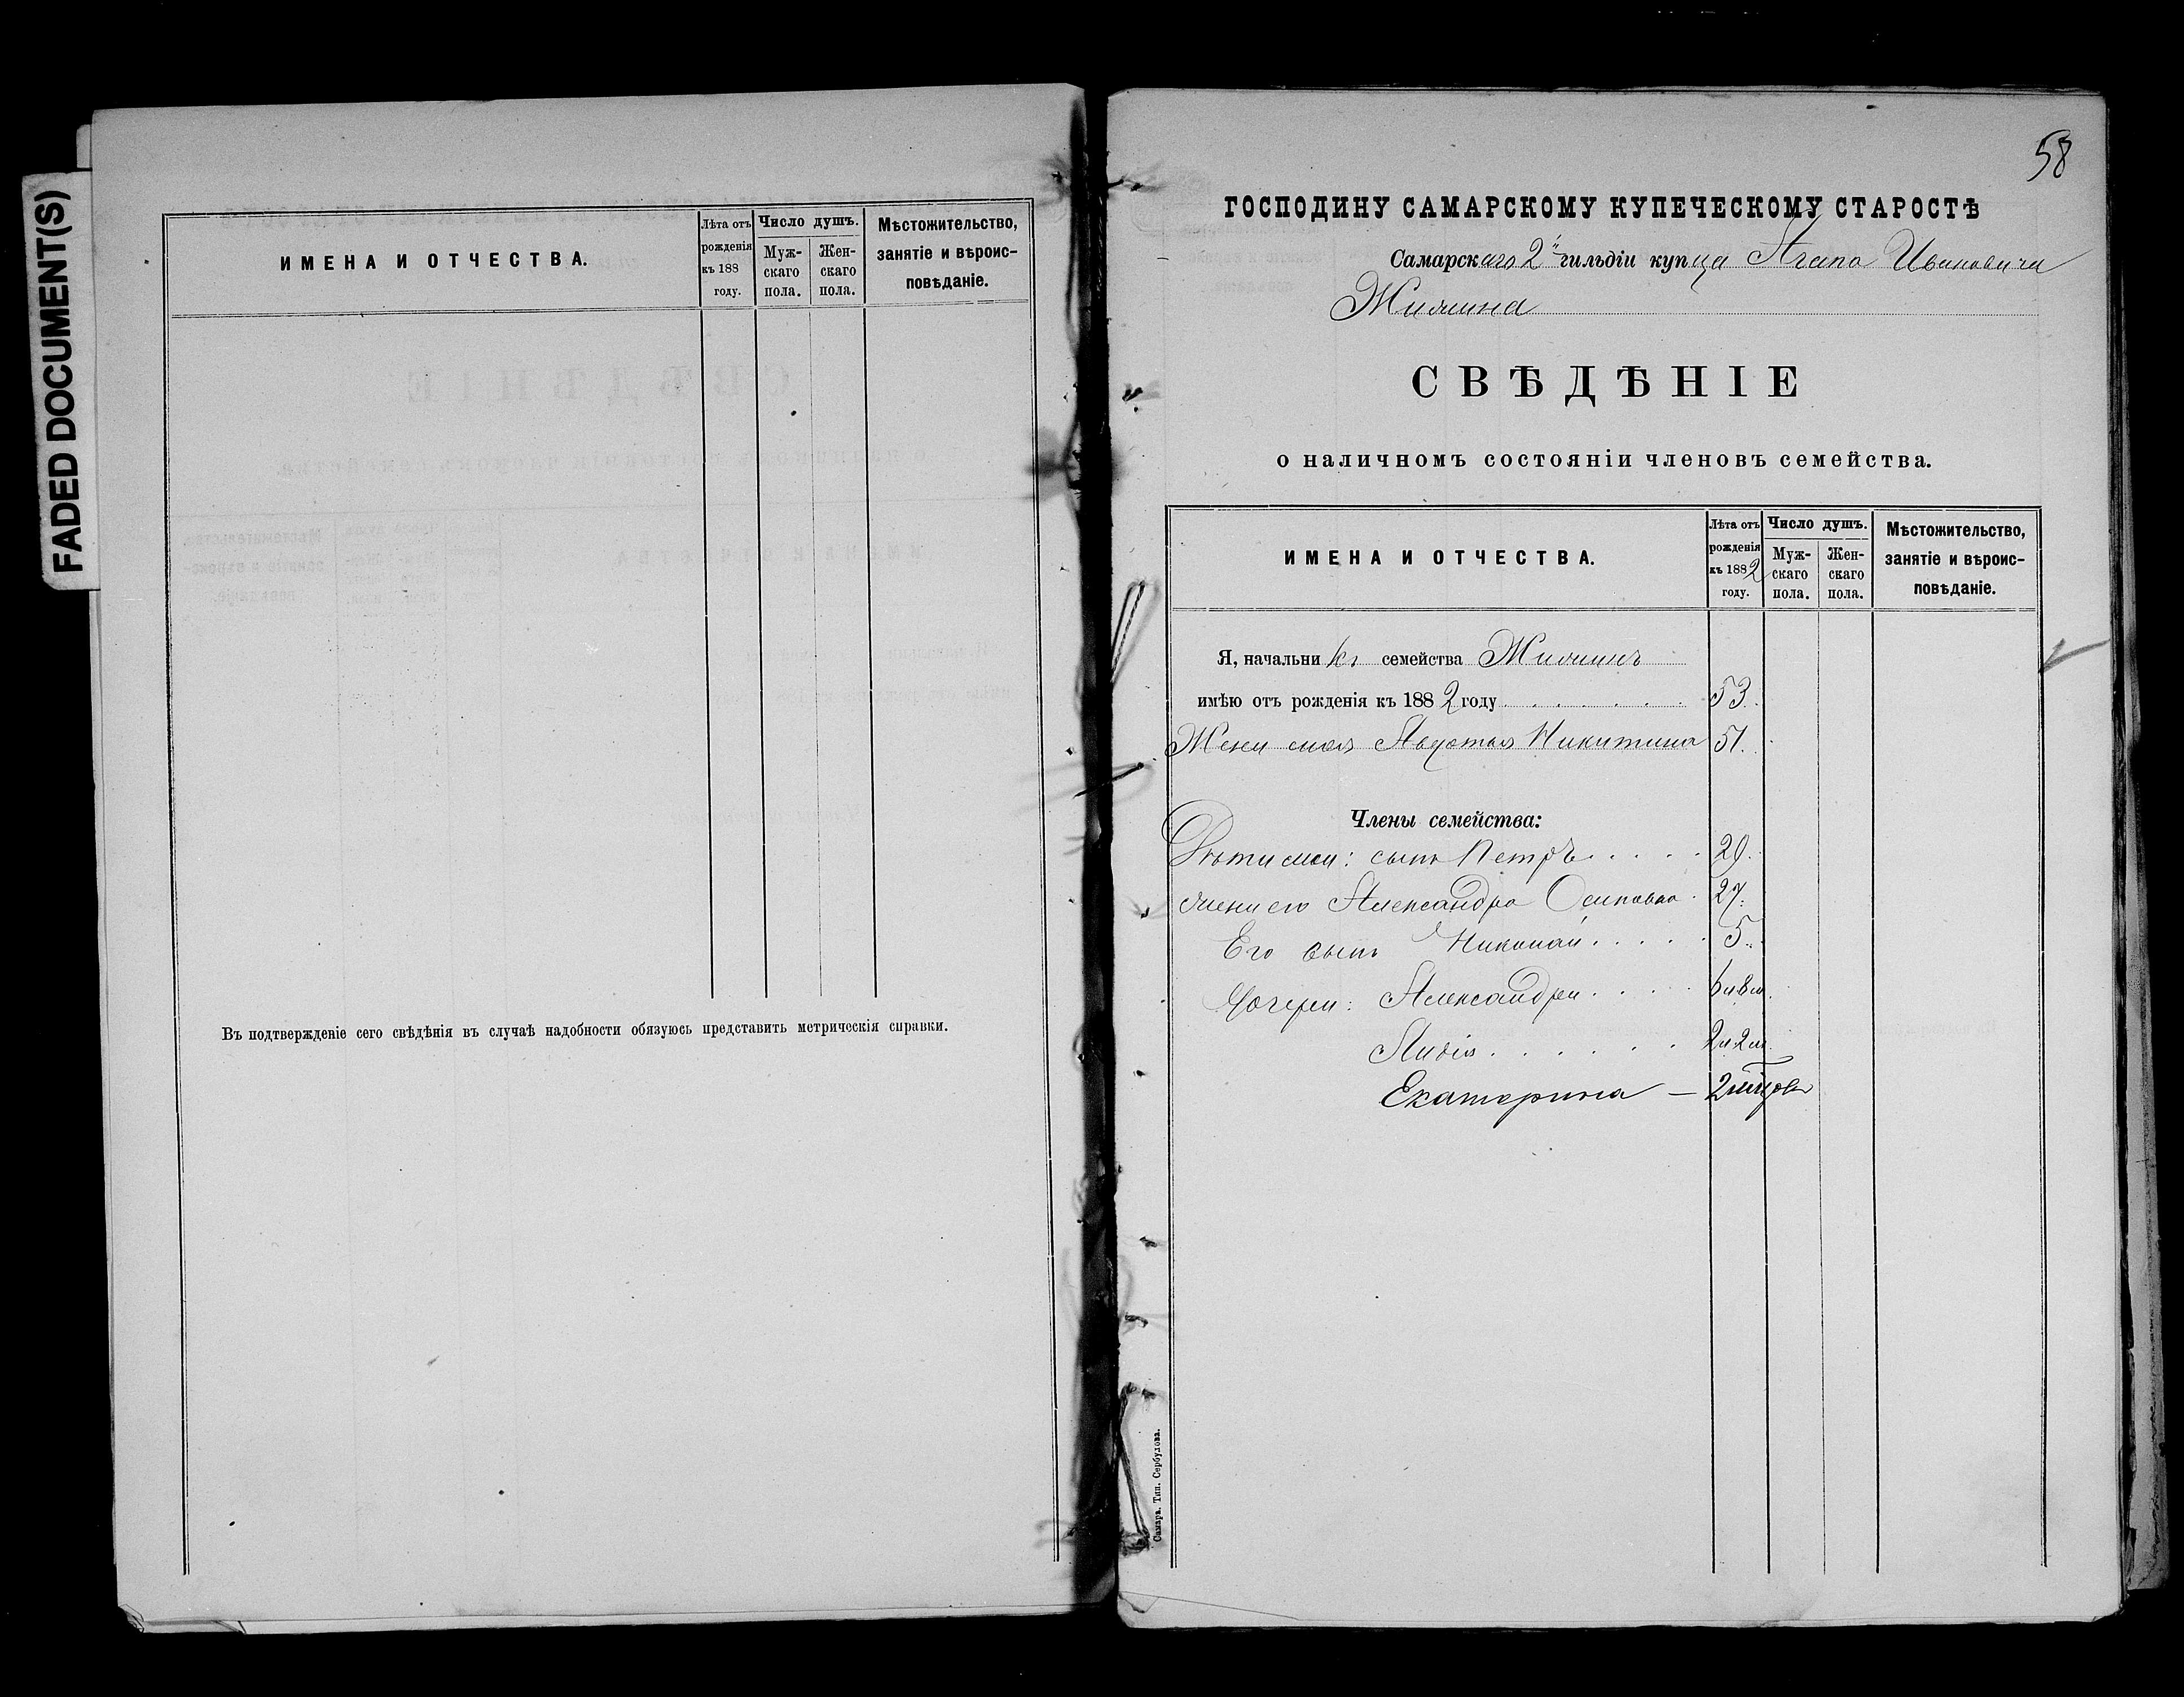 FADED DOCUMENT(S)
ИМЕНА И ОТЧЕСТВА.
Лѣта отъ рожденія къ 188 году.
Число душъ.
Мужскаго пола.
Женскаго пола.
Мѣстожительство, занятіе и вѣроисповѣданіе.
Въ подтвержденіе сего свѣдѣнія въ случаѣ надобности обязуюсь представить метрическія справки.
58
ГОСПОДИНУ САМАРСКОМУ КУПЕЧЕСКОМУ СТАРОСТѢ
Самарскаго 2й гильдіи купца Агапа Ивановича
Жилина
СВѢДѢНІЕ
о наличномъ состояніи членовъ семейства.
ИМЕНА И ОТЧЕСТВА.
Лѣта отъ рожденія къ 1882 году.
Число душъ.
Мужскаго пола.
Женскаго пола.
Мѣстожительство, занятіе и вѣроисповѣданіе.
Я, начальникъ семейства Жилинъ
имѣю отъ рожденія къ 1882 году 53.
Жена моя Авдотья Никитина 51.
Члены семейства:
Дѣти мои: сынъ Петръ 29.
жена его Александра Осиповна 27.
Его сынъ Николай 5.
Дочери: Александра
Лидія
Екатерина —
Самара. Тип. Сербулова.